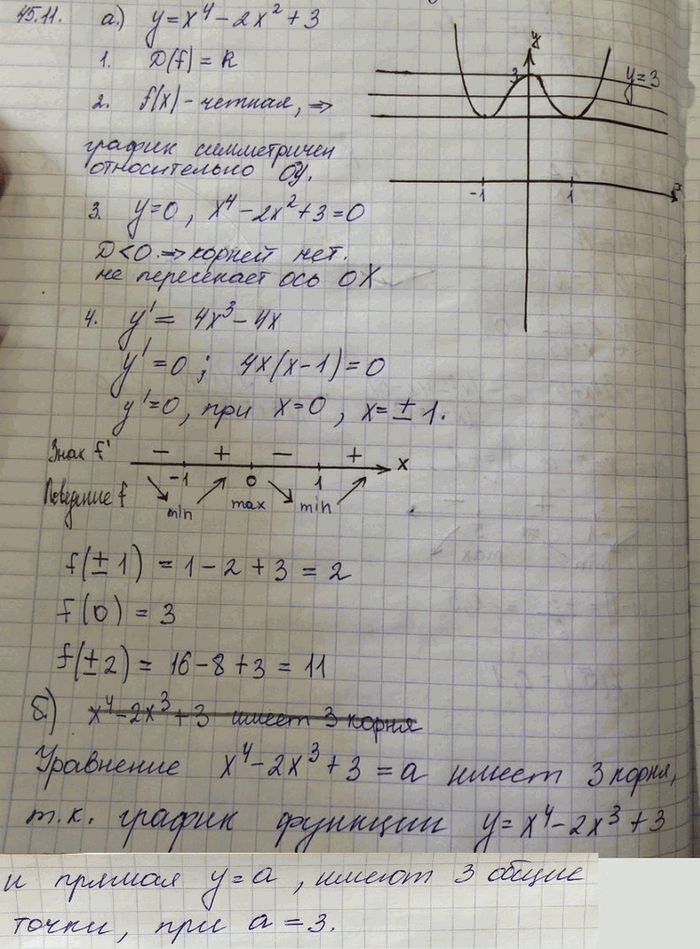 45.11. а.) y = x⁴ - 2x² + 3
1. D(f) = R
2. f(x) - четная, ⇒
график симметричен
относительно OY.
3. y=0, x⁴ - 2x² + 3 = 0
D<0 ⇒ корней нет.
не пересекает ось OX
4. y' = 4x³ - 4x
y' = 0; 4x(x-1) = 0
y'=0, при x=0, x= ± 1.
y
3
y=3
-1 1
x
Знак f' - + - +
-1 0 1 x
Поведение f min max min
f(± 1) = 1 - 2 + 3 = 2
f(0) = 3
f(±2) = 16 - 8 + 3 = 11
б) x⁴ - 2x³ + 3 имеет 3 корня
Уравнение x⁴ - 2x³ + 3 = a имеет 3 корня,
т.к. график функции y = x⁴ - 2x³ + 3
и прямая y = a, имеют 3 общие
точки, при a = 3.